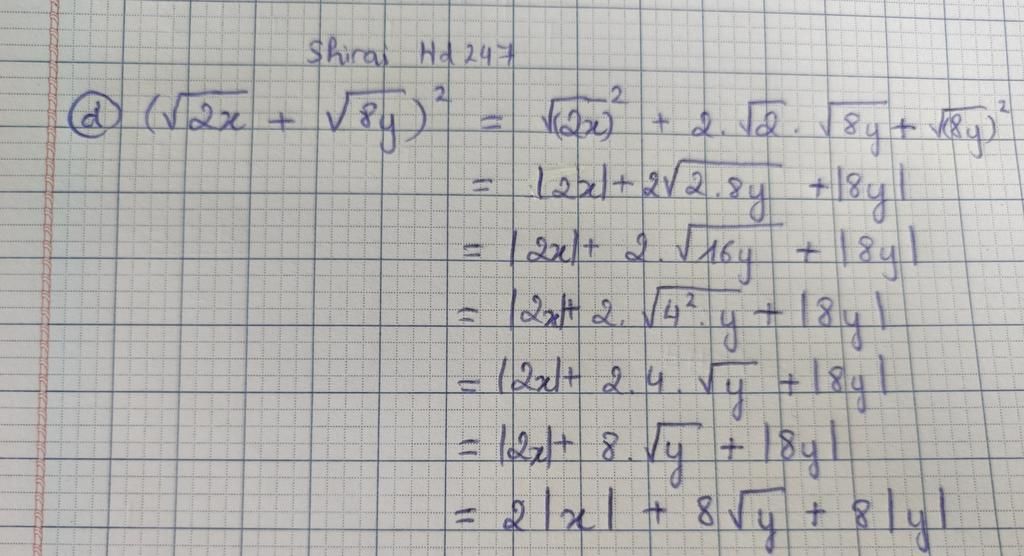 Shirai Hd 247
d) (√2x + √8y)² = √(2x)² + 2.√2.√8y + √(8y)²
= |2x| + 2√2.8y + |8y|
= |2x| + 2.√16y + |8y|
= |2x| + 2.√4².y + |8y|
= |2x| + 2.4.√y + |8y|
= |2x| + 8.√y + |8y|
= 2|x| + 8√y + 8|y|